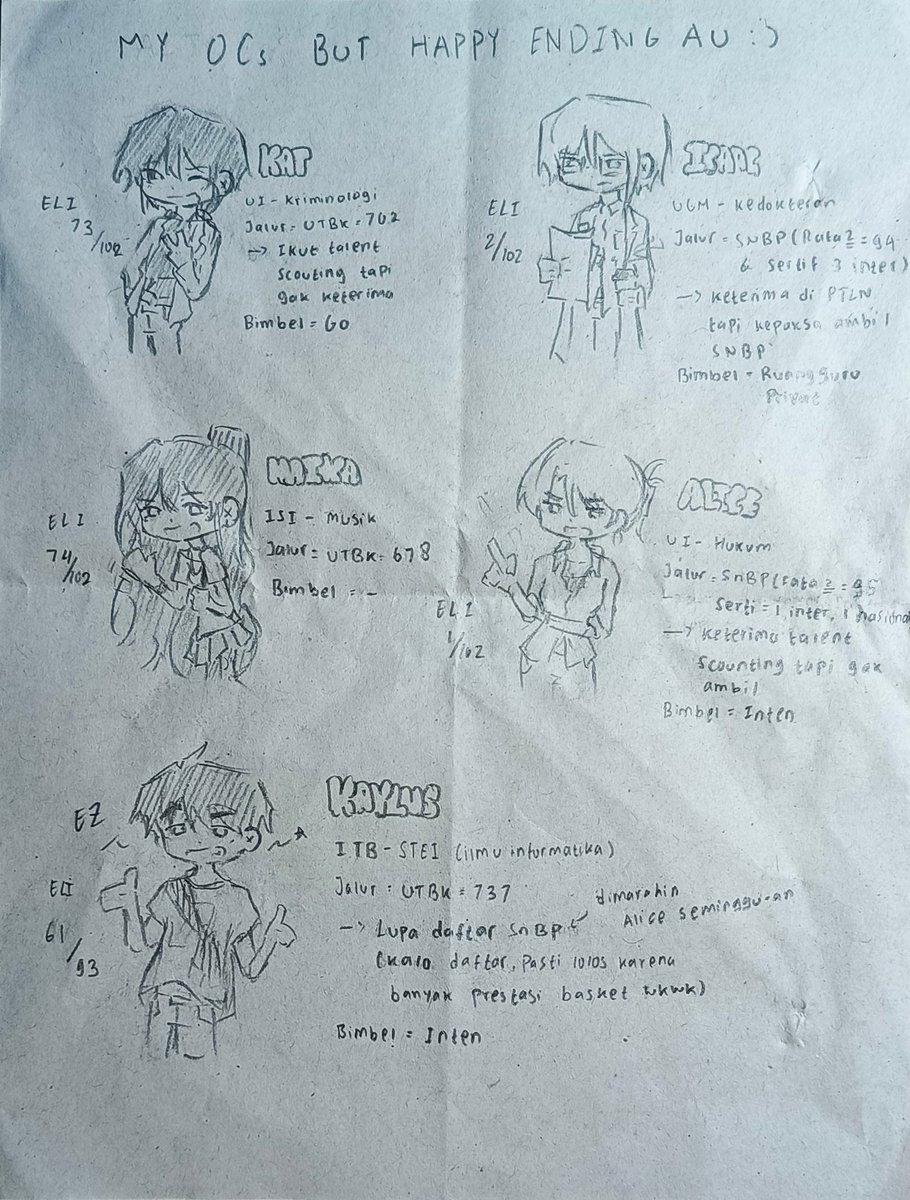 MY OCs BUT HAPPY ENDING AU :)
KAT
ELI
73/102
UI - Kriminologi
Jalur = UTBK = 702
→ Ikut talent
scouting tapi
gak keterima
Bimbel = GO
ISAAC
ELI
2/102
UGM - Kedokteran
Jalur = SNBP (Rata2 = 94
& sertif 3 inter)
→ keterima di PTLN
tapi kepaksa ambil
SNBP
Bimbel = Ruangguru
Privat
MAIKA
ELI
74/102
ISI - Musik
Jalur = UTBK = 678
Bimbel = -
ALICE
ELI
1/102
UI - Hukum
Jalur = SNBP (rata2 = 95
serti = 1 inter, 1 nasional
→ keterima talent
scounting tapi gak
ambil
Bimbel = Inten
KAYLUS
EZ
ELI
61/93
ITB - STEI (ilmu informatika)
Jalur = UTBK = 737
→ Lupa daftar SNBP ← dimarahin
Alice seminggu-an
(kalo daftar, pasti lolos karena
banyak prestasi basket wkwk)
Bimbel = Inten